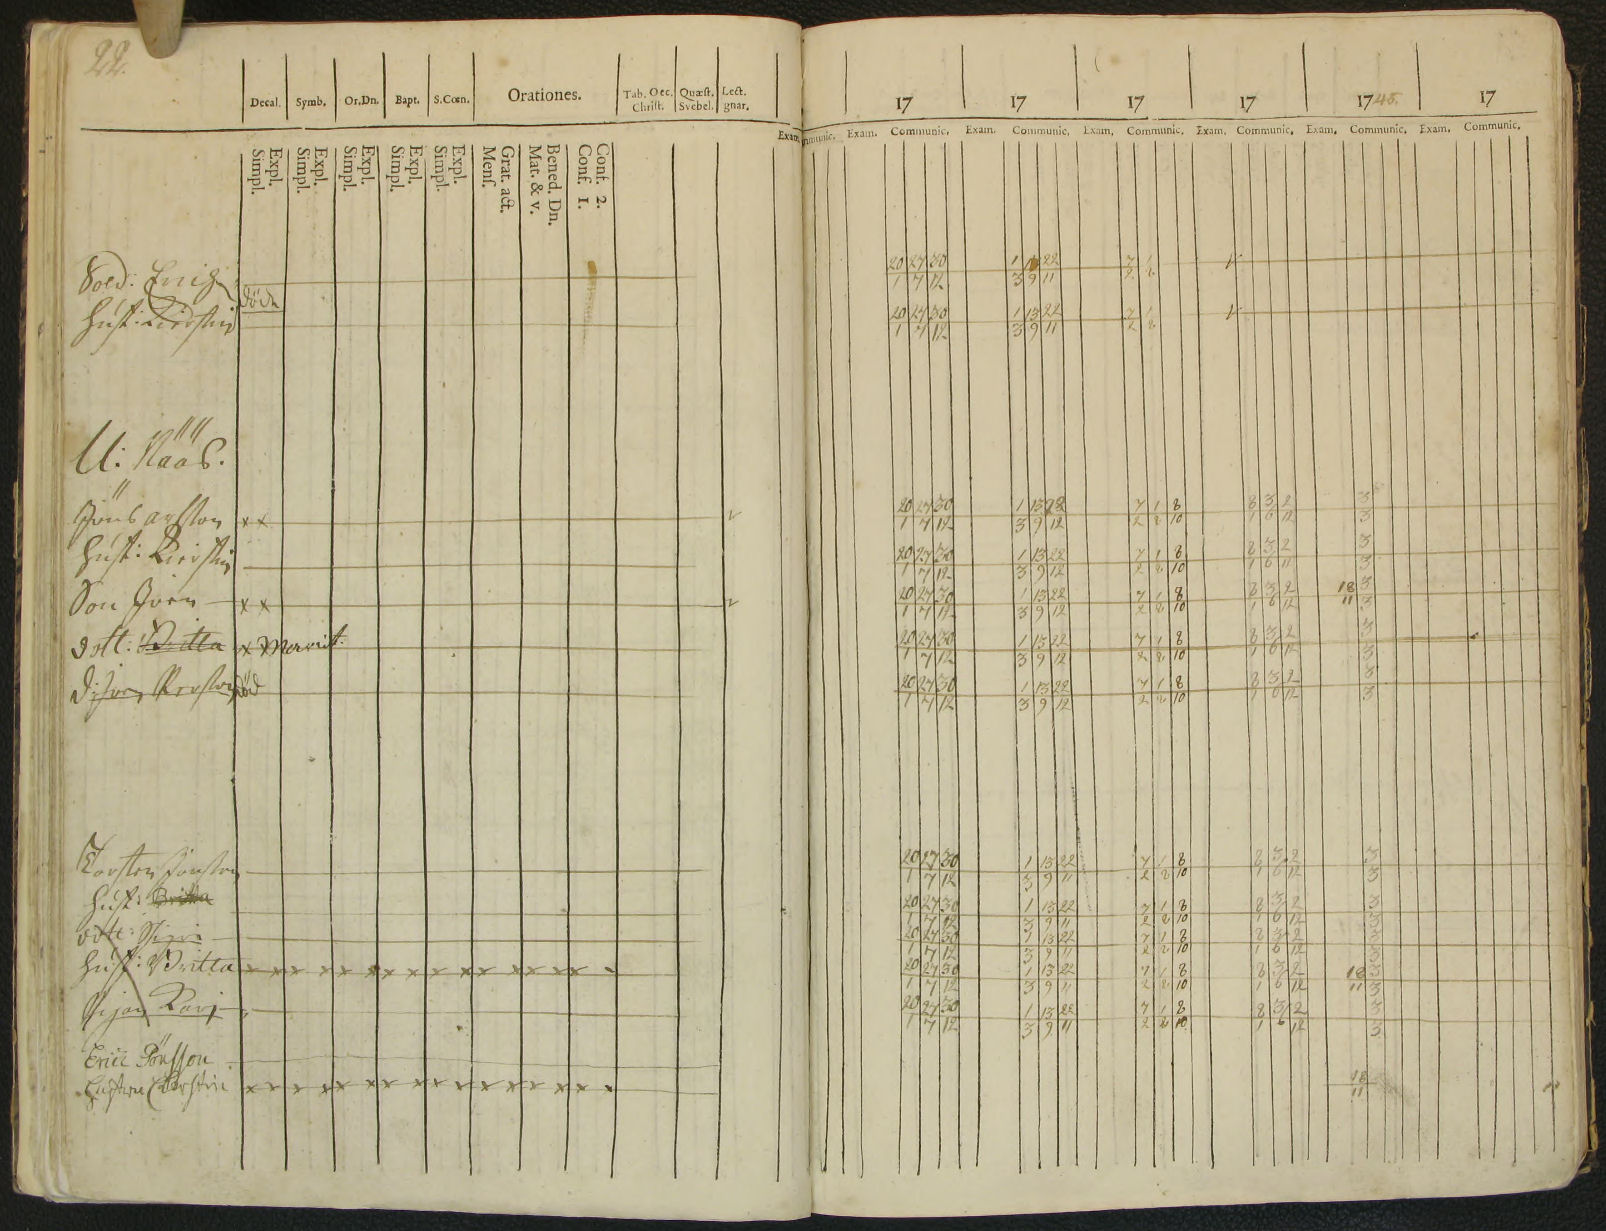 22.
Decal. Symb. Or.Dn. Bapt. S.Cœn. Orationes. Tab. Oec. Christ. Quæst. Svebel. Lect. gnar.
Exam.
Expl. Simpl. Expl. Simpl. Expl. Simpl. Expl. Simpl. Expl. Simpl. Grat. act. Mens. Bened. Dn. Mat. & v. Conf. 2. Conf. 1.
Sold: Erich
döda
Hust: Kierstin
U: Nääs.
Jöns Arfson x x
Hust: Kierstin
Son Jven x x
dott: Britta x Mererit.
död
Torsten Jonson
Hust: Britta
dott: Sigri
Hust: Britta x x x x x x x x x x x x x x
Pijan Kari
Eric Jönsson
Hustru Kerstin x x x x x x x x x x x x x x
17 17 17 17 1745. 17
Communic. Exam. Communic. Exam. Communic. Exam. Communic. Exam. Communic. Exam. Communic. Exam. Communic.
20 27 30 1 13 22 7 1
1 7 12 3 9 11 2 8
20 27 30 1 13 22 7 1
1 7 12 3 9 11 2 8
20 27 30 1 13 22 7 1 8 8 3 2 3
1 7 12 3 9 12 2 8 10 1 6 12 3
20 27 30 1 13 22 7 1 8 8 3 2 3
1 7 12 3 9 12 2 8 10 1 6 11 3
20 27 30 1 13 22 7 1 8 8 3 2 18 3
1 7 12 3 9 12 2 8 10 1 6 12 11 3
20 27 30 1 13 22 7 1 8 8 3 2 3
1 7 12 3 9 12 2 8 10 1 6 12 3
20 27 30 1 13 22 7 1 8 8 3 2 3
1 7 12 3 9 12 2 8 10 1 6 12 3
20 27 30 1 13 22 7 1 8 8 3 2 3
1 7 12 3 9 11 2 8 10 1 6 12 3
20 27 30 1 13 22 7 1 8 8 3 2 3
1 7 12 3 9 11 2 8 10 1 6 12 3
20 27 30 1 13 22 7 1 8 8 3 2 3
1 7 12 3 9 11 2 8 10 1 6 12 3
20 27 30 1 13 22 7 1 8 8 3 2 18 3
1 7 12 3 9 11 2 8 10 1 6 12 11 3
20 27 30 1 13 22 7 1 8 8 3 2 3
1 7 12 3 9 11 2 8 10 1 6 12 3
18
11